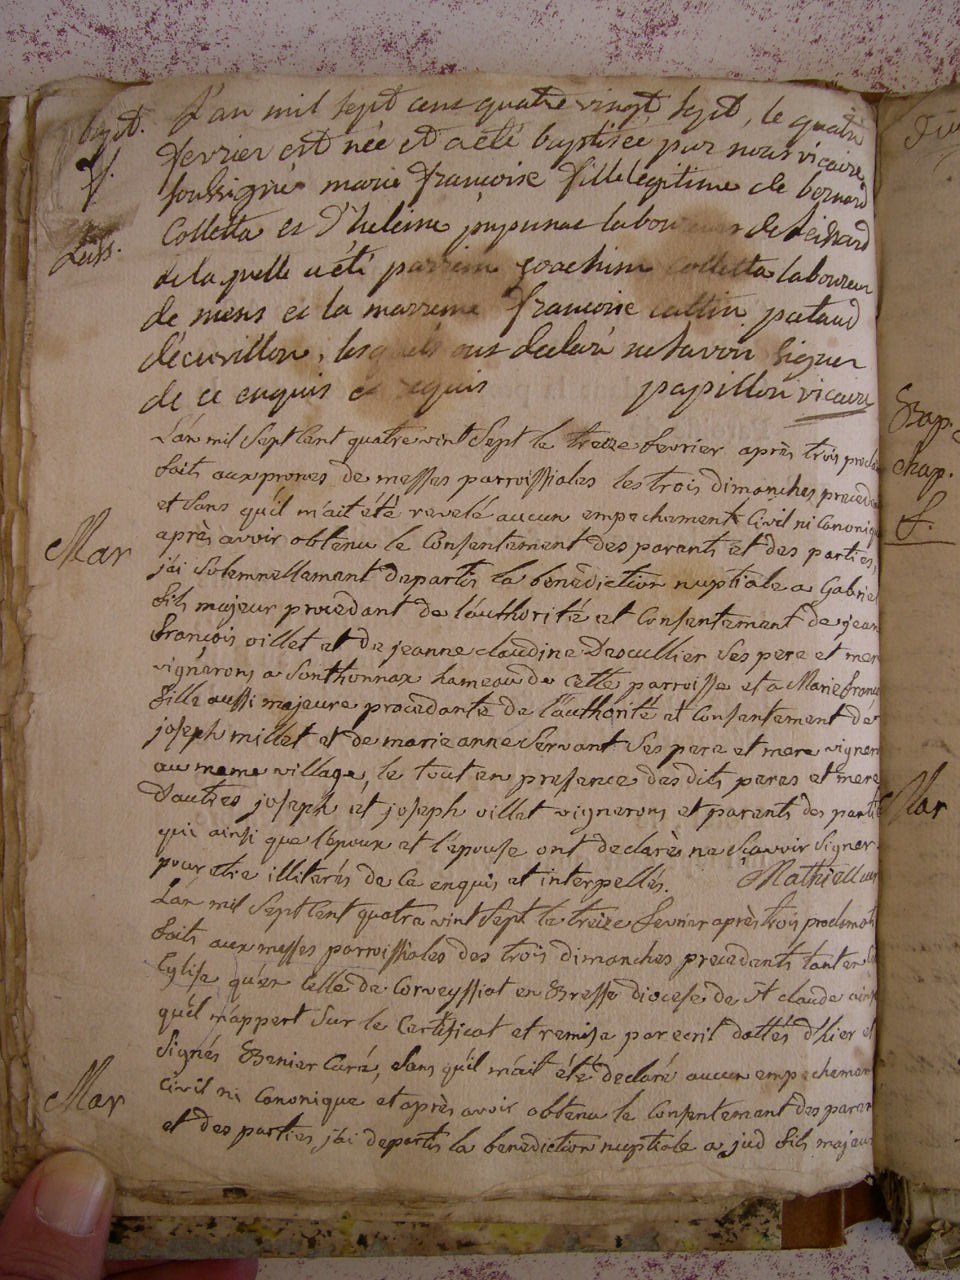 bapt. L'an mil sept cens quatre vingt sept, le quatre
f. fevrier est née et a été baptisée par nous vicaire
soussigné marie françoise fille légitime de bernard
Colletta et d'heleine laboureurs de
de la quelle a été parrein joachim colletta laboureur
de mens et la marreine françoise cattin pataud
décuvillon, lesquels ont declaré ne savoir signer
de ce enquis et requis papillon vicaire
L'an mil Sept Cent quatre vint Sept le treize fevrier après trois
faits aux prones de messes parroissiales les trois dimanches preced
et sans qu'il m'ait été revelé aucun empechament Civil ni Canoniq
Mar après avoir obtenu le Consentament des parants et des parties,
j'ai Solemnellamant departis la benediction nuptiale a Gabriel
fils majeur procedant de l'authorité et Consentament de jean
françois villet et de jeanne claudine Descullier Ses pere et mer
vignerons a Sonthonnax hameau de cette parroisse et a Marie franç
fille aussi majeure procedante de l'authorité et Consentament de
joseph millet et de marie anne Servant Ses pere et mere vigner
au meme village, le tout en presence des dits peres et mere
D'autres joseph et joseph villet vignerons et parents des parti
qui ainsi que l'epoux et l'epouse ont declarés ne Scavoir Signer
pour etre illiterés de Ce enquis et interpellés. Mathieu
L'an mil Sept Cent quatre vint Sept le treize fevrier après trois proclamat
faits aux messes parroissiales des trois dimanches precedants tant en
Eglise qu'en Celle de Corveyssiat en Bresse diocese de St claude ainsi
qu'il m'appert Sur le Certificat et remise par ecrit dattés d'hier et
Signés Benier Curé, Sans qu'il m'ait été declaré aucun empechamen
Mar Civil ni Canonique et après avoir obtenu le Consentament des paran
et des parties, j'ai departis la benediction nuptiale a jud fils majeur
Bap.
chap.
f.
Mar